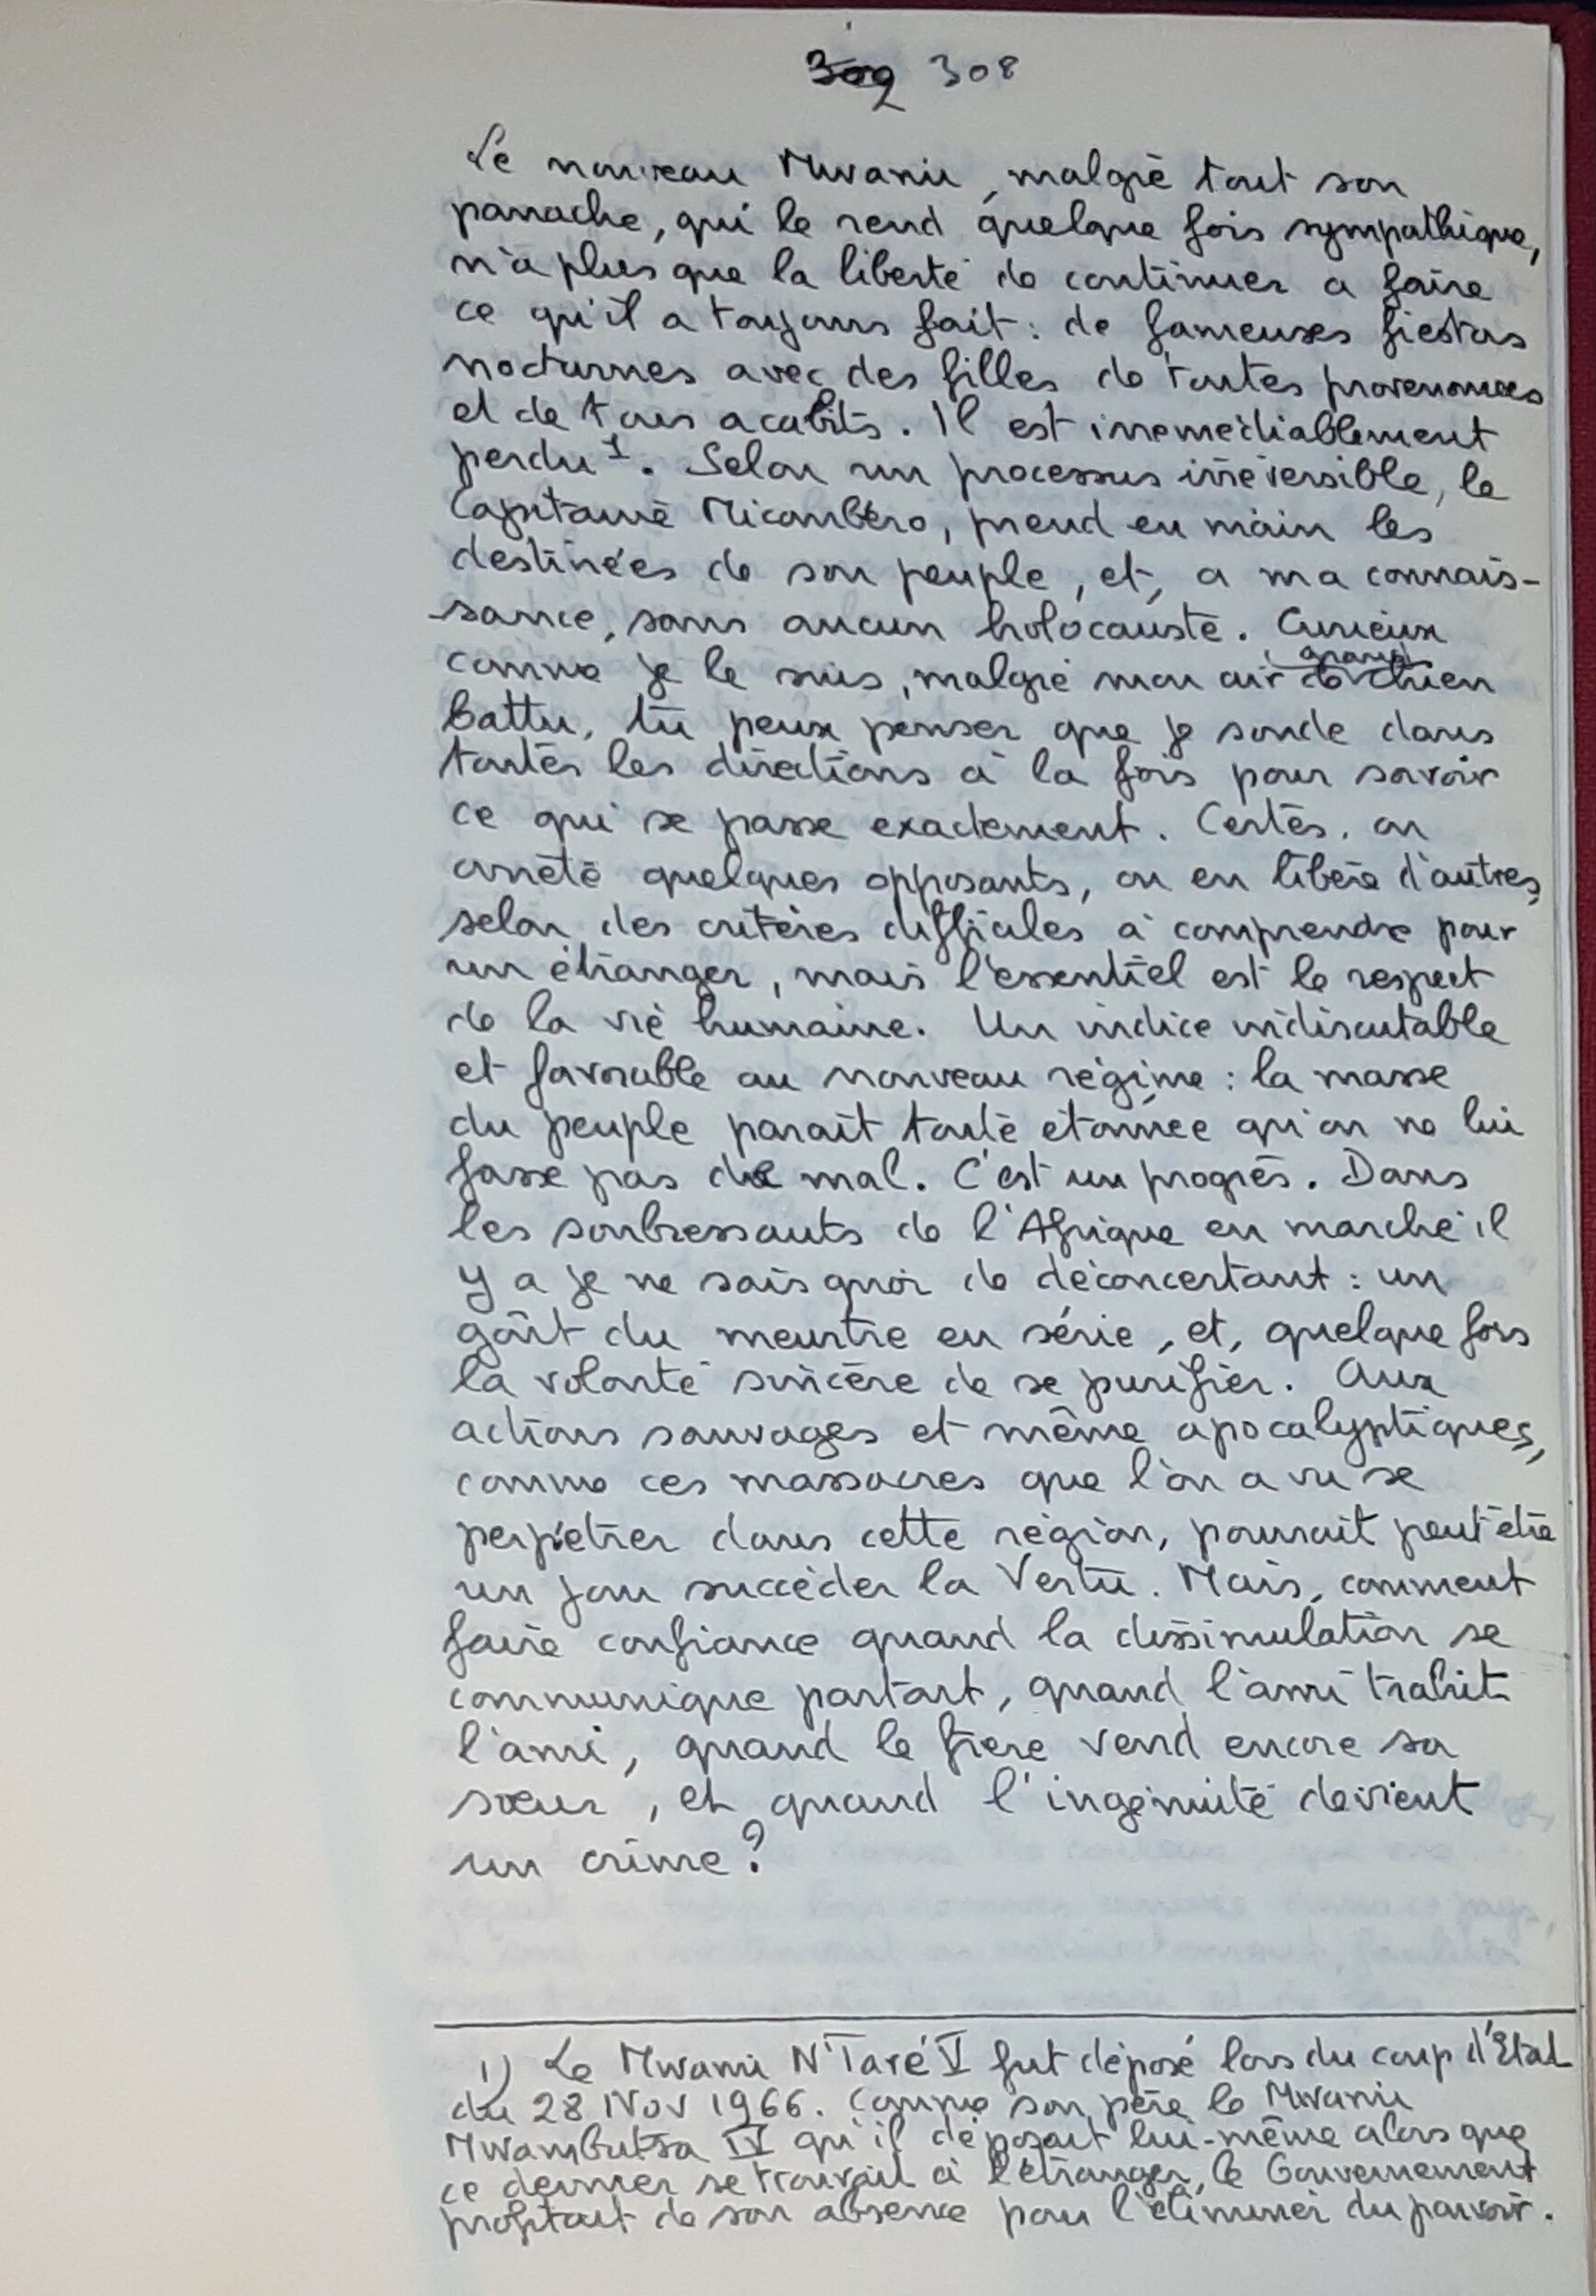 309 308
Le nouveau Mwami, malgré tout son
panache, qui le rend quelque fois sympathique,
n'a plus que la liberté de continuer a faire
ce qu'il a toujours fait : de fameuses fiestas
nocturnes avec des filles de toutes provenances
et de tous acabits. Il est irremédiablement
perdu 1. Selon un processus irréversible, le
Capitaine Micombéro, prend en main les
destinées de son peuple, et, a ma connais-
-sance, sans aucun holocauste. Curieux
comme je le suis, malgré mon air de chien
battu, tu peux penser que je sonde dans
toutes les directions à la fois pour savoir
ce qui se passe exactement. Certes, on
arrête quelques opposants, on en libère d'autres,
selon des critères difficiles à comprendre pour
un étranger, mais l'essentiel est le respect
de la vie humaine. Un indice indiscutable
et favorable au nouveau régime : la masse
du peuple parait toute étonnée qu'on ne lui
fasse pas de mal. C'est un progrès. Dans
les soubressauts de l'Afrique en marche il
y a je ne sais quoi de déconcertant : un
goût du meurtre en série, et, quelque fois
la volonté sincère de se purifier. Aux
actions sauvages et même apocalyptiques,
comme ces massacres que l'on a vu se
perpétrer dans cette région, pourrait peut être
un jour succéder la Vertu. Mais, comment
faire confiance quand la dissimulation se
communique partout, quand l'ami trahit
l'ami, quand le frère vend encore sa
sœur, et quand l'ingénuité devient
un crime ?
1) Le Mwami N'Taré V fut déposé lors du coup d'Etat
du 28 Nov 1966. Comme son père le Mwami
Mwambutsa IV qu'il déposait lui-même alors que
ce dernier se trouvait à l'étranger, le Gouvernement
profitait de son absence pour l'éliminer du pouvoir.